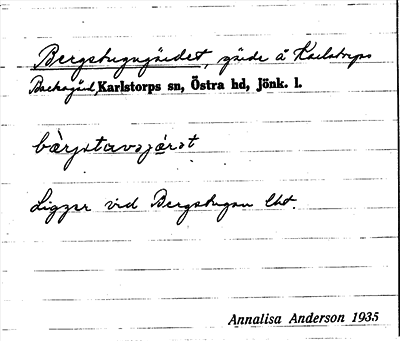 Bergstugugärdet, gärde å Karlstorps
Backegård, Karlstorps sn, Östra hd, Jönk. l.
bàrjstavɔjæ̀rət
Ligger vid Bergstugan lht.
Annalisa Anderson 1935